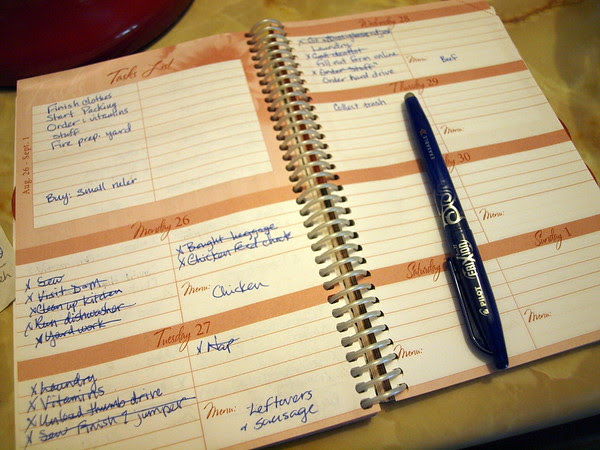 Tasks List
Aug. 26 - Sept. 1
Finish clothes
Start Packing
Order: vitamins
stuff
Fire prep. yard
Buy: small ruler
Monday 26
X Sew
X Visit Dom
X Clean up kitchen
X Run dishwasher
X Yard work
X Bought luggage
X Chicken feed check
Menu: Chicken
Tuesday 27
X Laundry
X Vitamins
X Unload thumb drive
X Sew Finish jumper
X Nap
Menu: Leftovers
sausage
Wednesday 28
Laundry
Fill out form online
X Order stuff
Order hard drive
Menu: Beef
Thursday 29
Collect trash
Menu:
30
Menu:
Saturday
Menu:
Sunday 1
Menu:
PILOT FRIXION